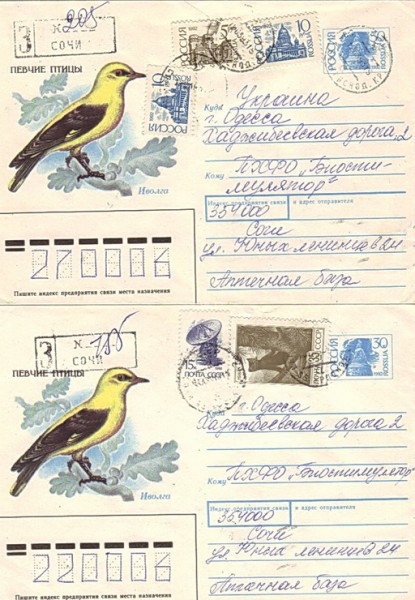 З № 205
СОЧИ
ПЕВЧИЕ ПТИЦЫ
Иволга
РОССИЯ 5
РОССИЯ 10 ROSSIJA
РОССИЯ 10
РОССИЯ ROSSIJA
Куда Украина
г. Одесса
Хаджибеевская дорога, 2
Кому ПХФО „Биости-
мулятор"
Индекс предприятия связи и адрес отправителя
354000
Сочи
ул. Юных ленинцев 24
Аптечная база
270006
Пишите индекс предприятия связи места назначения
З № 785
СОЧИ
ПЕВЧИЕ ПТИЦЫ
Иволга
15к ПОЧТА СССР
СССР
РОССИЯ 30 ROSSIJA
Куда г. Одесса
Хаджибеевская дорога 2
Кому ПХФО „Биостимулятор"
Индекс предприятия связи и адрес отправителя
354000
Сочи
ул. Юных ленинцев 24
Аптечная база
220006
Пишите индекс предприятия связи места назначения